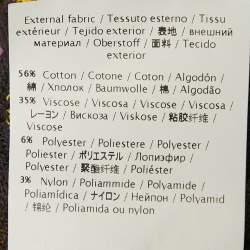 External fabric / Tessuto esterno / Tissu
extérieur / Tejido exterior / 表地 / внешний
материал / Oberstoff / 面料 / Tecido
exterior
56% Cotton / Cotone / Coton / Algodón /
綿 / Хполок / Baumwolle / 棉 / Algodão
35% Viscose / Viscosa / Viscose / Viscosa /
レーヨン / Вискоза / Viskose / 粘胶纤维 /
Viscose
6% Polyester / Poliestere / Polyester /
Poliester / ポリエステル / Лопиэфир /
Polyester / 聚酯纤维 / Poliéster
3% Nylon / Poliammide / Polyamide /
Poliamídica / ナイロン / Нейпон / Polyamid
/ 锦纶 / Poliamida ou nylon